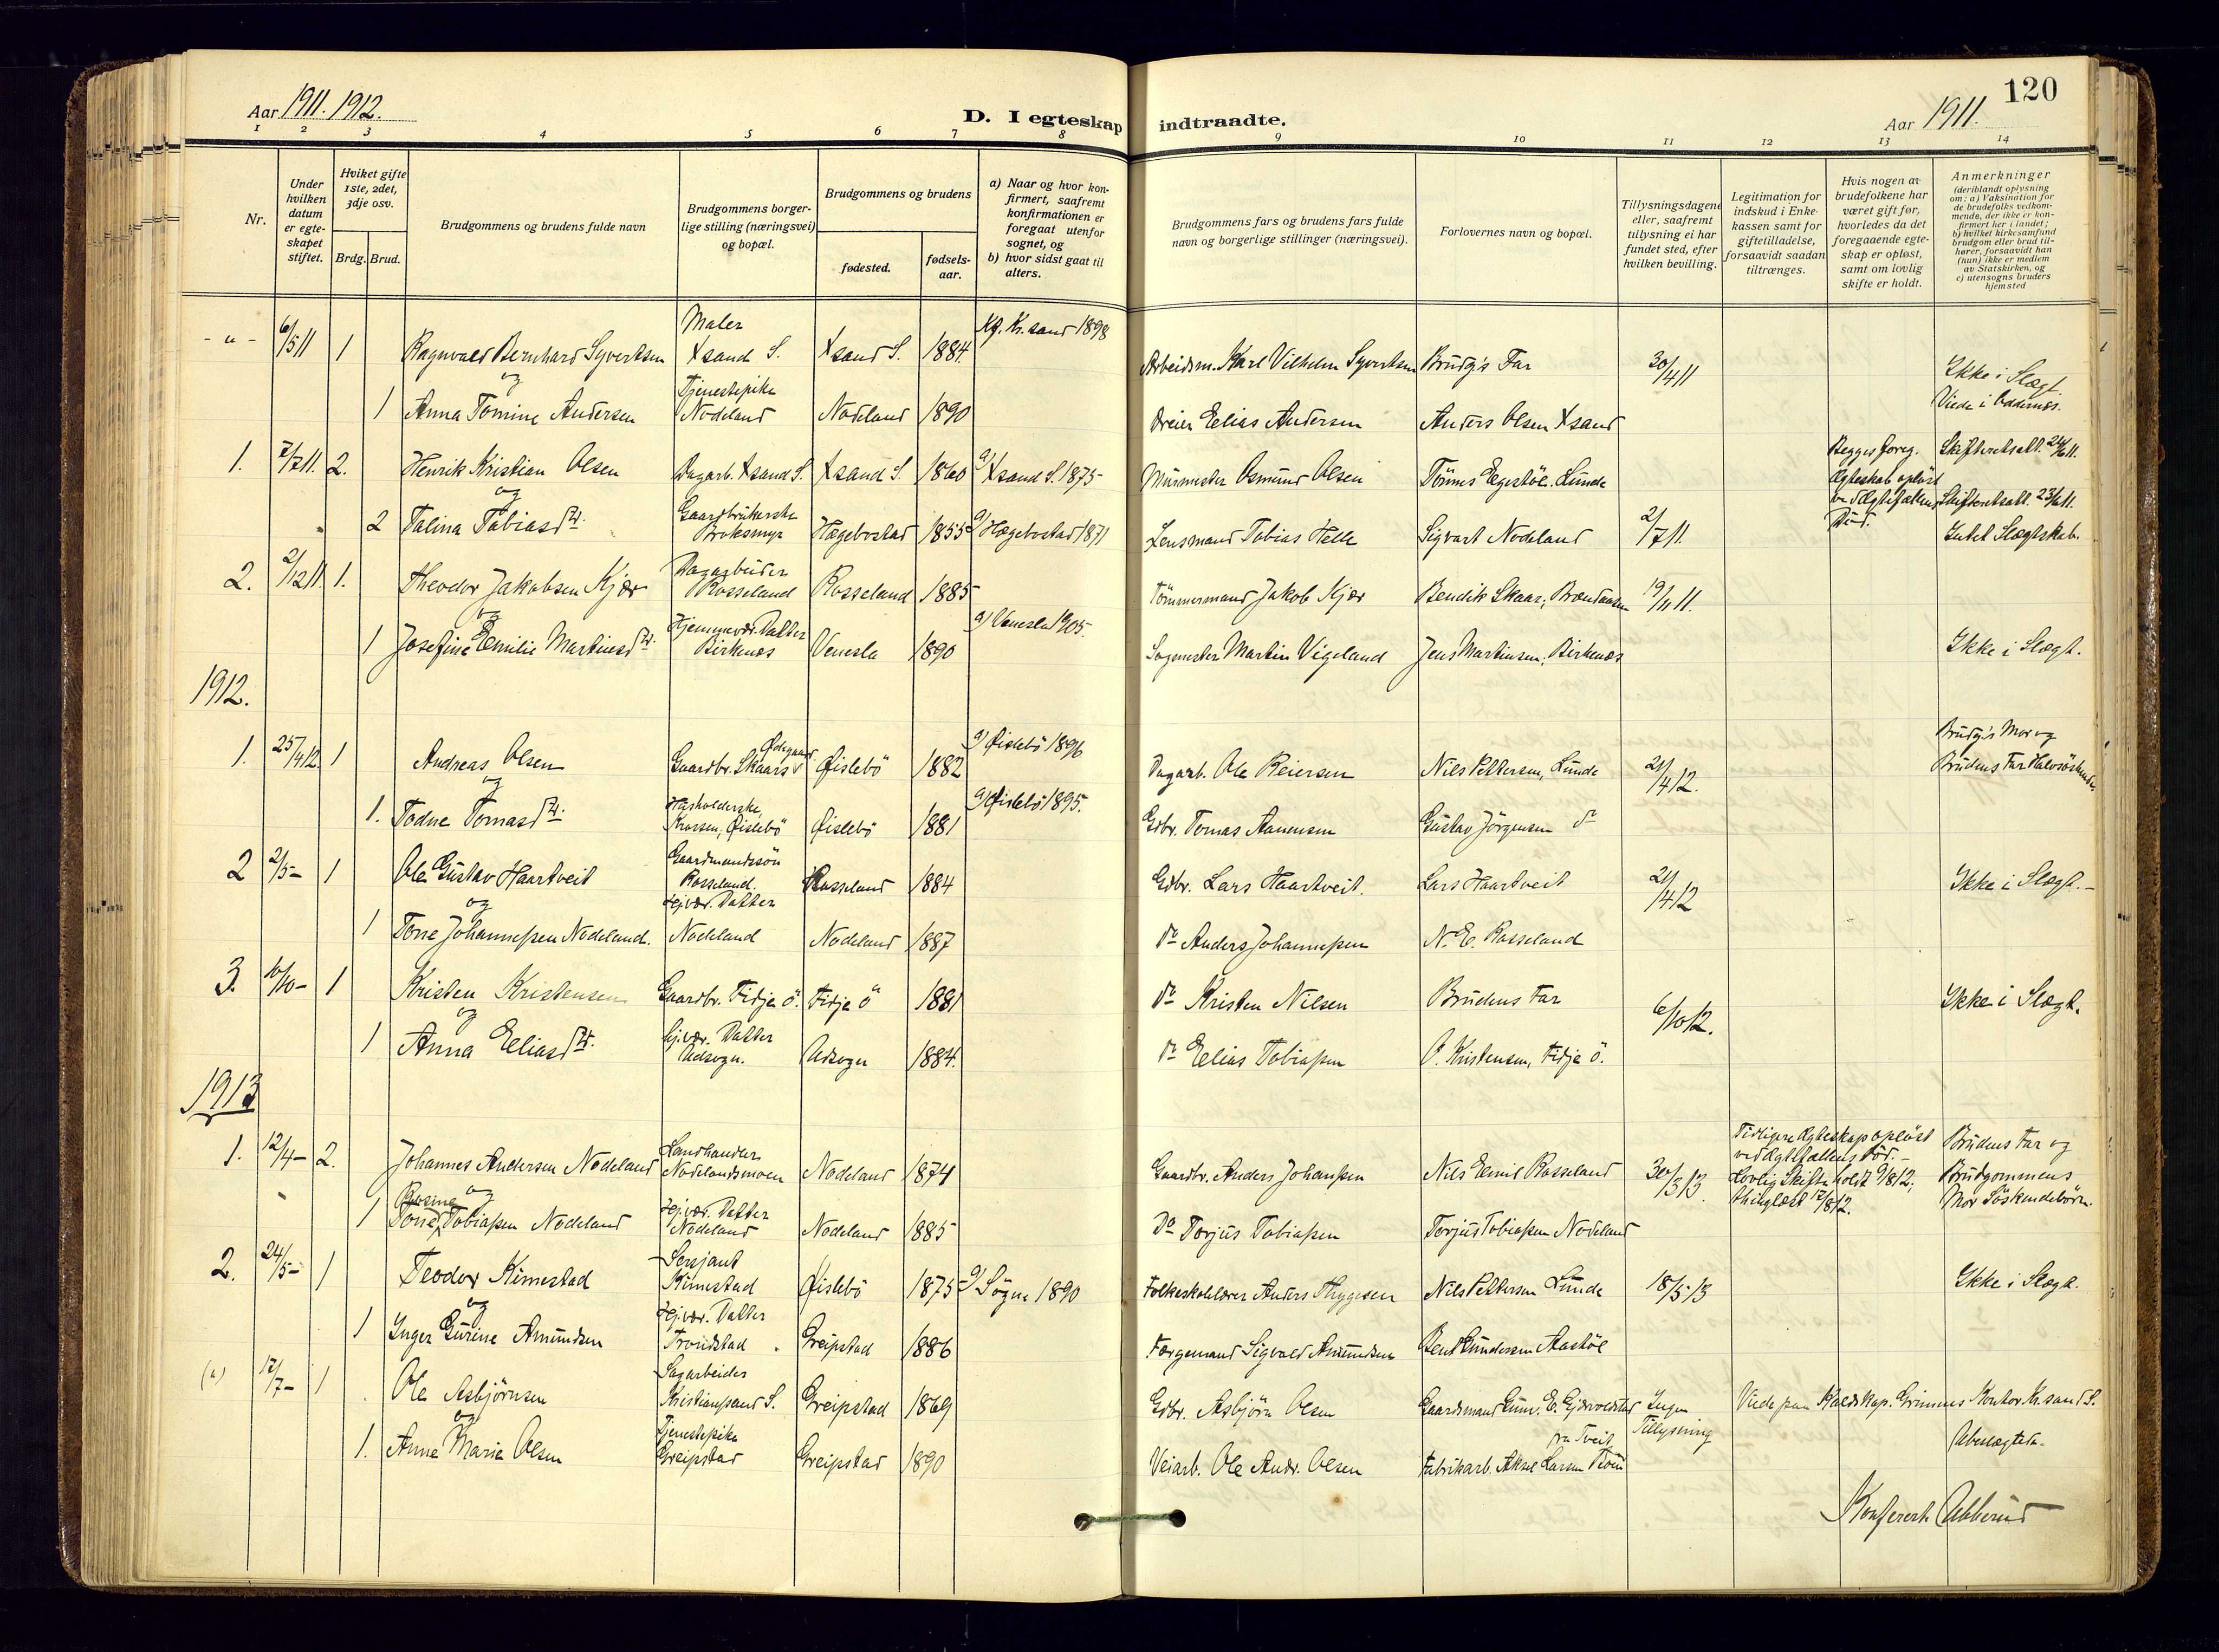 Aar 1911. 1912.
D. I egteskap indtraadte.
Aar 1911.
120
1 2 3 4 5 6 7 8 9 10 11 12 13 14
Nr.
Under hvilken datum er egteskapet stiftet.
Hviket gifte 1ste, 2det, 3dje osv.
Brdg. Brud.
Brudgommens og brudens fulde navn
Brudgommens borgerlige stilling (næringsvei) og bopæl.
Brudgommens og brudens
fødested.
fødselsaar.
a) Naar og hvor konfirmert, saafremt konfirmationen er foregaat utenfor sognet, og
b) hvor sidst gaat til alters.
Brudgommens fars og brudens fars fulde navn og borgerlige stillinger (næringsvei).
Forlovernes navn og bopæl.
Tillysningsdagene eller, saafremt tillysning ei har fundet sted, efter hvilken bevilling.
Legitimation for indskud i Enkekassen samt for giftetilladelse, forsaavidt saadan tiltrænges.
Hvis nogen av brudefolkene har været gift før, hvorledes da det foregaaende egteskap er opløst, samt om lovlig skifte er holdt.
Anmerkninger
(deriblandt oplysning om: a) Vaksination for de brudefolks vedkommende, der ikke er konfirmert her i landet; b) hvilket kirkesamfund brudgom eller brud tilhører, forsaavidt han (hun) ikke er medlem av Statskirken, og c) utensogns bruders hjemsted
- " - 6/5 11 1 Ragnvald Bernhard Syvertsen Maler Xsand S. Xsand S. 1884. Kf. Kr.sand 1898 Arbeidsm. Karl Vilhelm Syvertsen Brudg's Far 30/4 11 Ikke i Slægt.
og
1 Anna Tomine Andersen Tjenestepike Nodeland Nodeland 1890 Dreier Elias Andersen Anders Olsen Xsand Viede i Oddernes.
1. 7/7 11. 2. Henrik Kristian Olsen Dagarb. Xsand S. Xsand S. 1860 a) Xsand S. 1875 Murmester Osmund Olsen Tönnes Egestöl. Lunde Begges foreg. Ægteskab opløst ved Ægtefællens Död. Skifteretsatt. 24/6 11.
og
2 Talina Tobiasdtr. Gaardbrukerske Broksmyr Hægebostad 1855 a) Hægebostad 1871 Lensmand Tobias Helle Sigvart Nodeland 2/7 11. Skifteretsatt. 23/6 11. Intet Slægtskab.
2. 2/12 11. 1. Theodor Jakobsen Kjær Dagarbeider Rosseland Rosseland 1885 Tömmermand Jakob Kjær Bendik Skaar; 19/11 11.
og
1 Josefine Emilie Martinesdtr. Hjemmevær. Datter Birkenes Venesla 1890 a) Venesla 1905. Sagmester Martin Vigeland Jens Martinsen; Birkenes Ikke i Slægt.
1912.
1. 25/4 12. 1 Andreas Olsen Gaardbr. Skaars Ødegaard Øislebö 1882 a) Øislebö 1896 Dagarb. Ole Reiersen Nils Pettersen, Lunde 21/4 12. Brudg's Mor og Brudens Far Halvsöskende.
og
1. Todne Tomasdtr. Husholderske, Øislebö Øislebö 1881 a) Øislebö 1895. Gdbr. Tomas Aanensen Gustav Jörgensen do
2 2/5 - 1 Ole Gustav Haartveit Gaardmandssön Rosseland. Rosseland 1884 Gdbr. Lars Haartveit. Lars Haartveit 21/4 12 Ikke i Slægt. -
og
1 Torre Johannessen Nodeland. Hj.vær. Datter Nodeland Nodeland 1887 do Anders Johannessen N. E. Rosseland
3. 10/10 - 1 Kristen Kristensen Gaardbr. Fidje ö. Fidje ö 1881 do Kristen Nilsen Brudens Far 6/10 12. Ikke i Slægt.
og
1 Anna Eliasdtr. Hj.vær. Datter Udsogn. Udsogn 1884. do Elias Tobiassen O. Kristensen, Fidje ö.
1913
1. 12/4 - 2. Johannes Andersen Nodeland Landhandler Nodelandsmoen Nodeland 1874 Gaardbr. Anders Johanssen Nils Emil Rosseland 30/3 13. Tidligere Ægteskap opløst ved Ægtefællens Död. - Lovlig Skifte holdt 9/8 12; thinglæst 17/8 12. Brudens Far og Brudgommens Mor Söskendebörn.
og
1 Torre Rosine Tobiassen Nodeland Hj.vær. Datter Nodeland Nodeland 1885 Do Torjus Tobiassen Torjus Tobiassen Nodeland
2. 24/5 - 1 Teodor Kimestad Sersjant Kimestad Øislebö 1875 a) Søgne 1890 Folkeskolelærer Anders Thygesen Nils Pettersen Lunde 18/5 13 Ikke i Slægt.
og
1 Inger Gurine Amundsen Hj.vær. Datter Trondstad Greipstad 1886 Færgemand Sigvald Amundsen Bent Gundersen Aastöl
(a) 17/7 - 1 Ole Asbjörnsen Sagarbeider Kristiansand S. Greipstad 1869 Gdbr. Asbjörn Olsen Gaardmand Gun. E. paa Tveit Ingen Tillysning Viede paa Kontor Kr.sand S.
og
1. Anne Marie Olsen Tjenestepike Greipstad Greipstad 1890 Veiarb. Ole Andr. Olsen Fabrikarb. Aksel Larsen Ubeslægtede.
Konferert